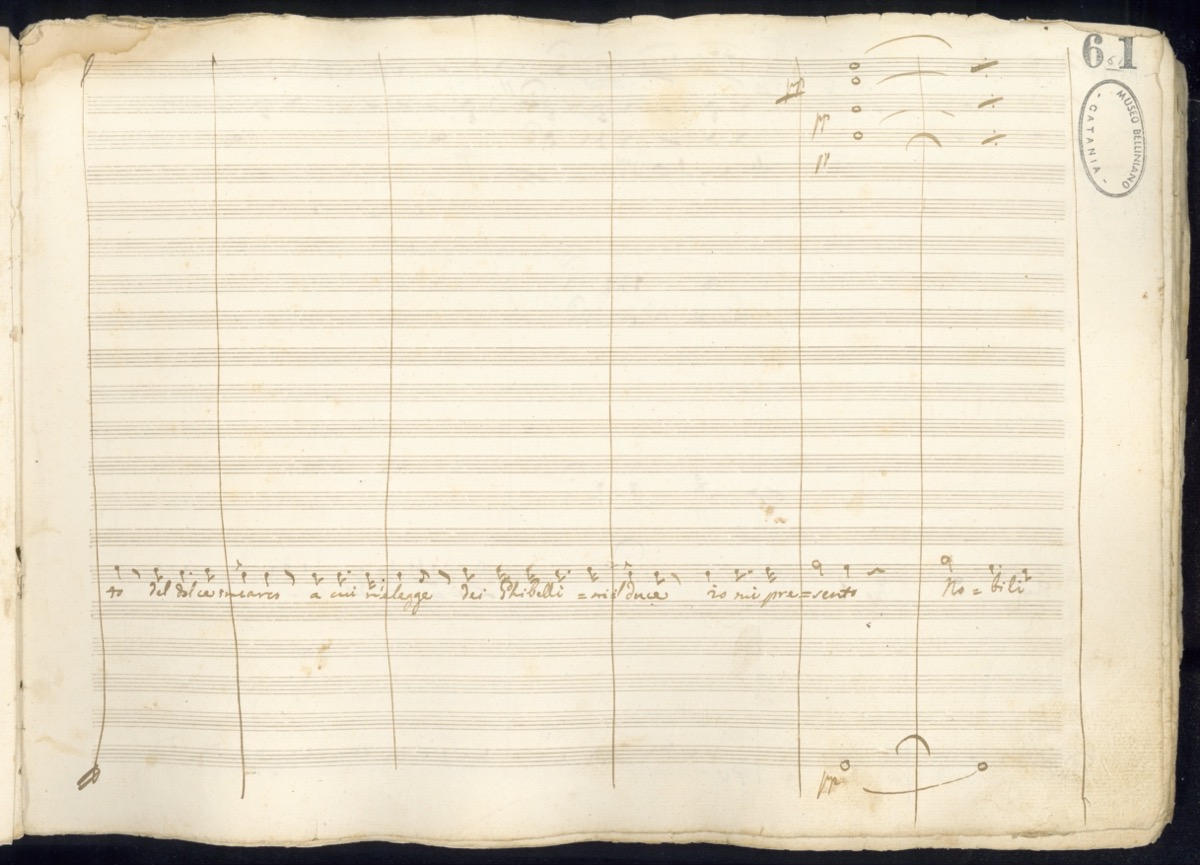 61
61
MUSEO BELLINIANO
- CATANIA -
pp
pp
pp
to del dolce incarco a cui mi elegge dei Ghibelli = ni il duce io mi pre = sento No = bili
pp